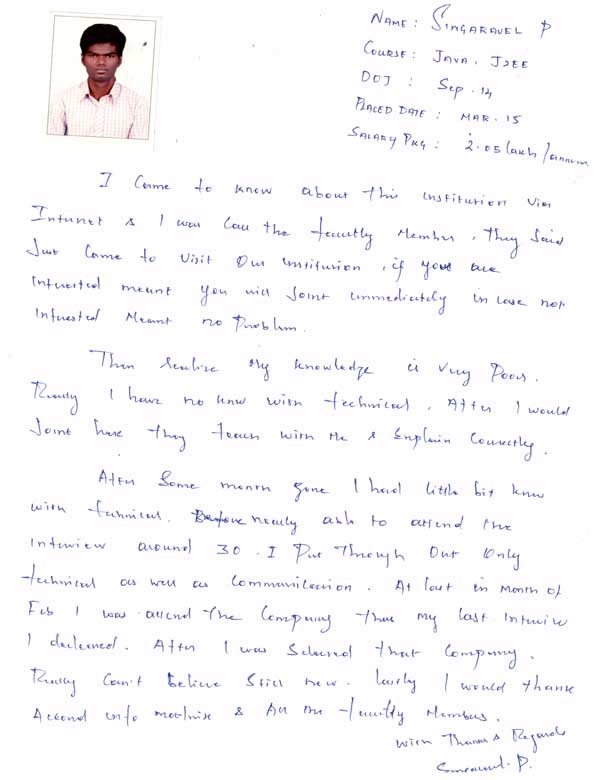 NAME: SINGARAVEL P
COURSE: JAVA, J2EE
DOJ : Sep. 14
PLACED DATE: MAR. 15
SALARY PKG: 2.05 lakh/annum
I Came to know about this institution via
Internet & I was Call the faculty Member. They Said
Just Came to visit Our institution, if you are
Interested meant you will Joint immediately in case not
Interested Meant no Problem.
Then realize My knowledge is very Poor.
Really I have no know with technical. After I would
Joint here they teach with Me & Explain Correctly.
After Some month gone I had little bit know
with technical. nearly able to attend the
Interview around 30. I Put Through Out Only
technical as well as Communication. At last in Month of
Feb I was attend the Company that my last Interview
I declared. After I was Selected that Company.
Really Can't believe Still now. lastly I would thank
Accord info matrix & All the faculty Members.
With Thanks & Regards
P.